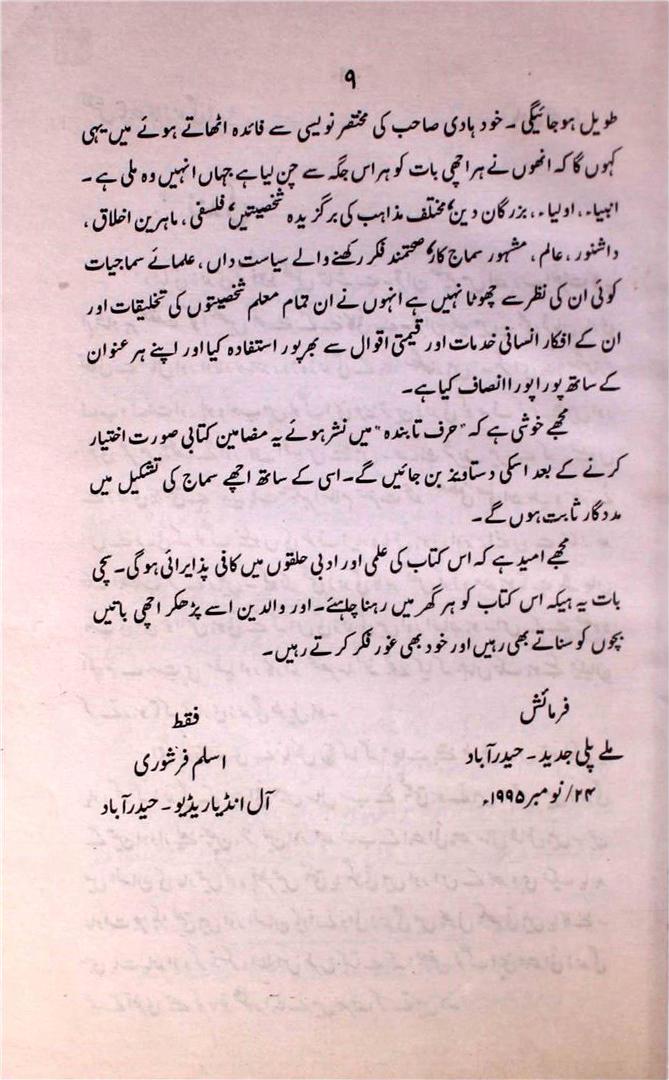 ۹
طویل ہوجائیگی ۔ خود ہادی صاحب کی مختصر نویسی سے فائدہ اٹھاتے ہوئے میں یہی
کہوں گا کہ انھوں نے ہر اچھی بات کو ہر اس جگہ سے چن لیا ہے جہاں انہیں وہ ملی ہے ۔
انبیاء ، اولیاء ، بزرگان دین ، مختلف مذاہب کی برگزیدہ شخصیتیں ، فلسفی ، ماہرین اخلاق ،
داشنور ، عالم ، مشہور سماج کار ، صحتمند فکر رکھنے والے سیاست داں ، علمائے سماجیات
کوئی ان کی نظر سے چھوٹا نہیں ہے انہوں نے ان تمام معلم شخصیتوں کی تخلیقات اور
ان کے افکار انسانی خدمات اور قیمتی اقوال سے بھرپور استفادہ کیا اور اپنے ہر عنوان
کے ساتھ پورا پورا انصاف کیا ہے ۔
مجھے خوشی ہے کہ "حرف تابندہ" میں نشر ہوئے یہ مضامین کتابی صورت اختیار
کرنے کے بعد اسکی دستاویز بن جائیں گے ۔ اسی کے ساتھ اچھے سماج کی تشکیل میں
مددگار ثابت ہوں گے ۔
مجھے امید ہے کہ اس کتاب کی علمی اور ادبی حلقوں میں کافی پذیرائی ہوگی ۔ سچی
بات یہ ہیکہ اس کتاب کو ہر گھر میں رہنا چاہئے ۔ اور والدین اسے پڑھکر اچھی باتیں
بچوں کو سناتے بھی رہیں اور خود بھی غور فکر کرتے رہیں ۔
فرمائش
ملے پلی جدید ۔ حیدرآباد
۲۴/ نومبر ۱۹۹۵ء
فقط
اسلم فرشوری
آل انڈیا ریڈیو ۔ حیدرآباد